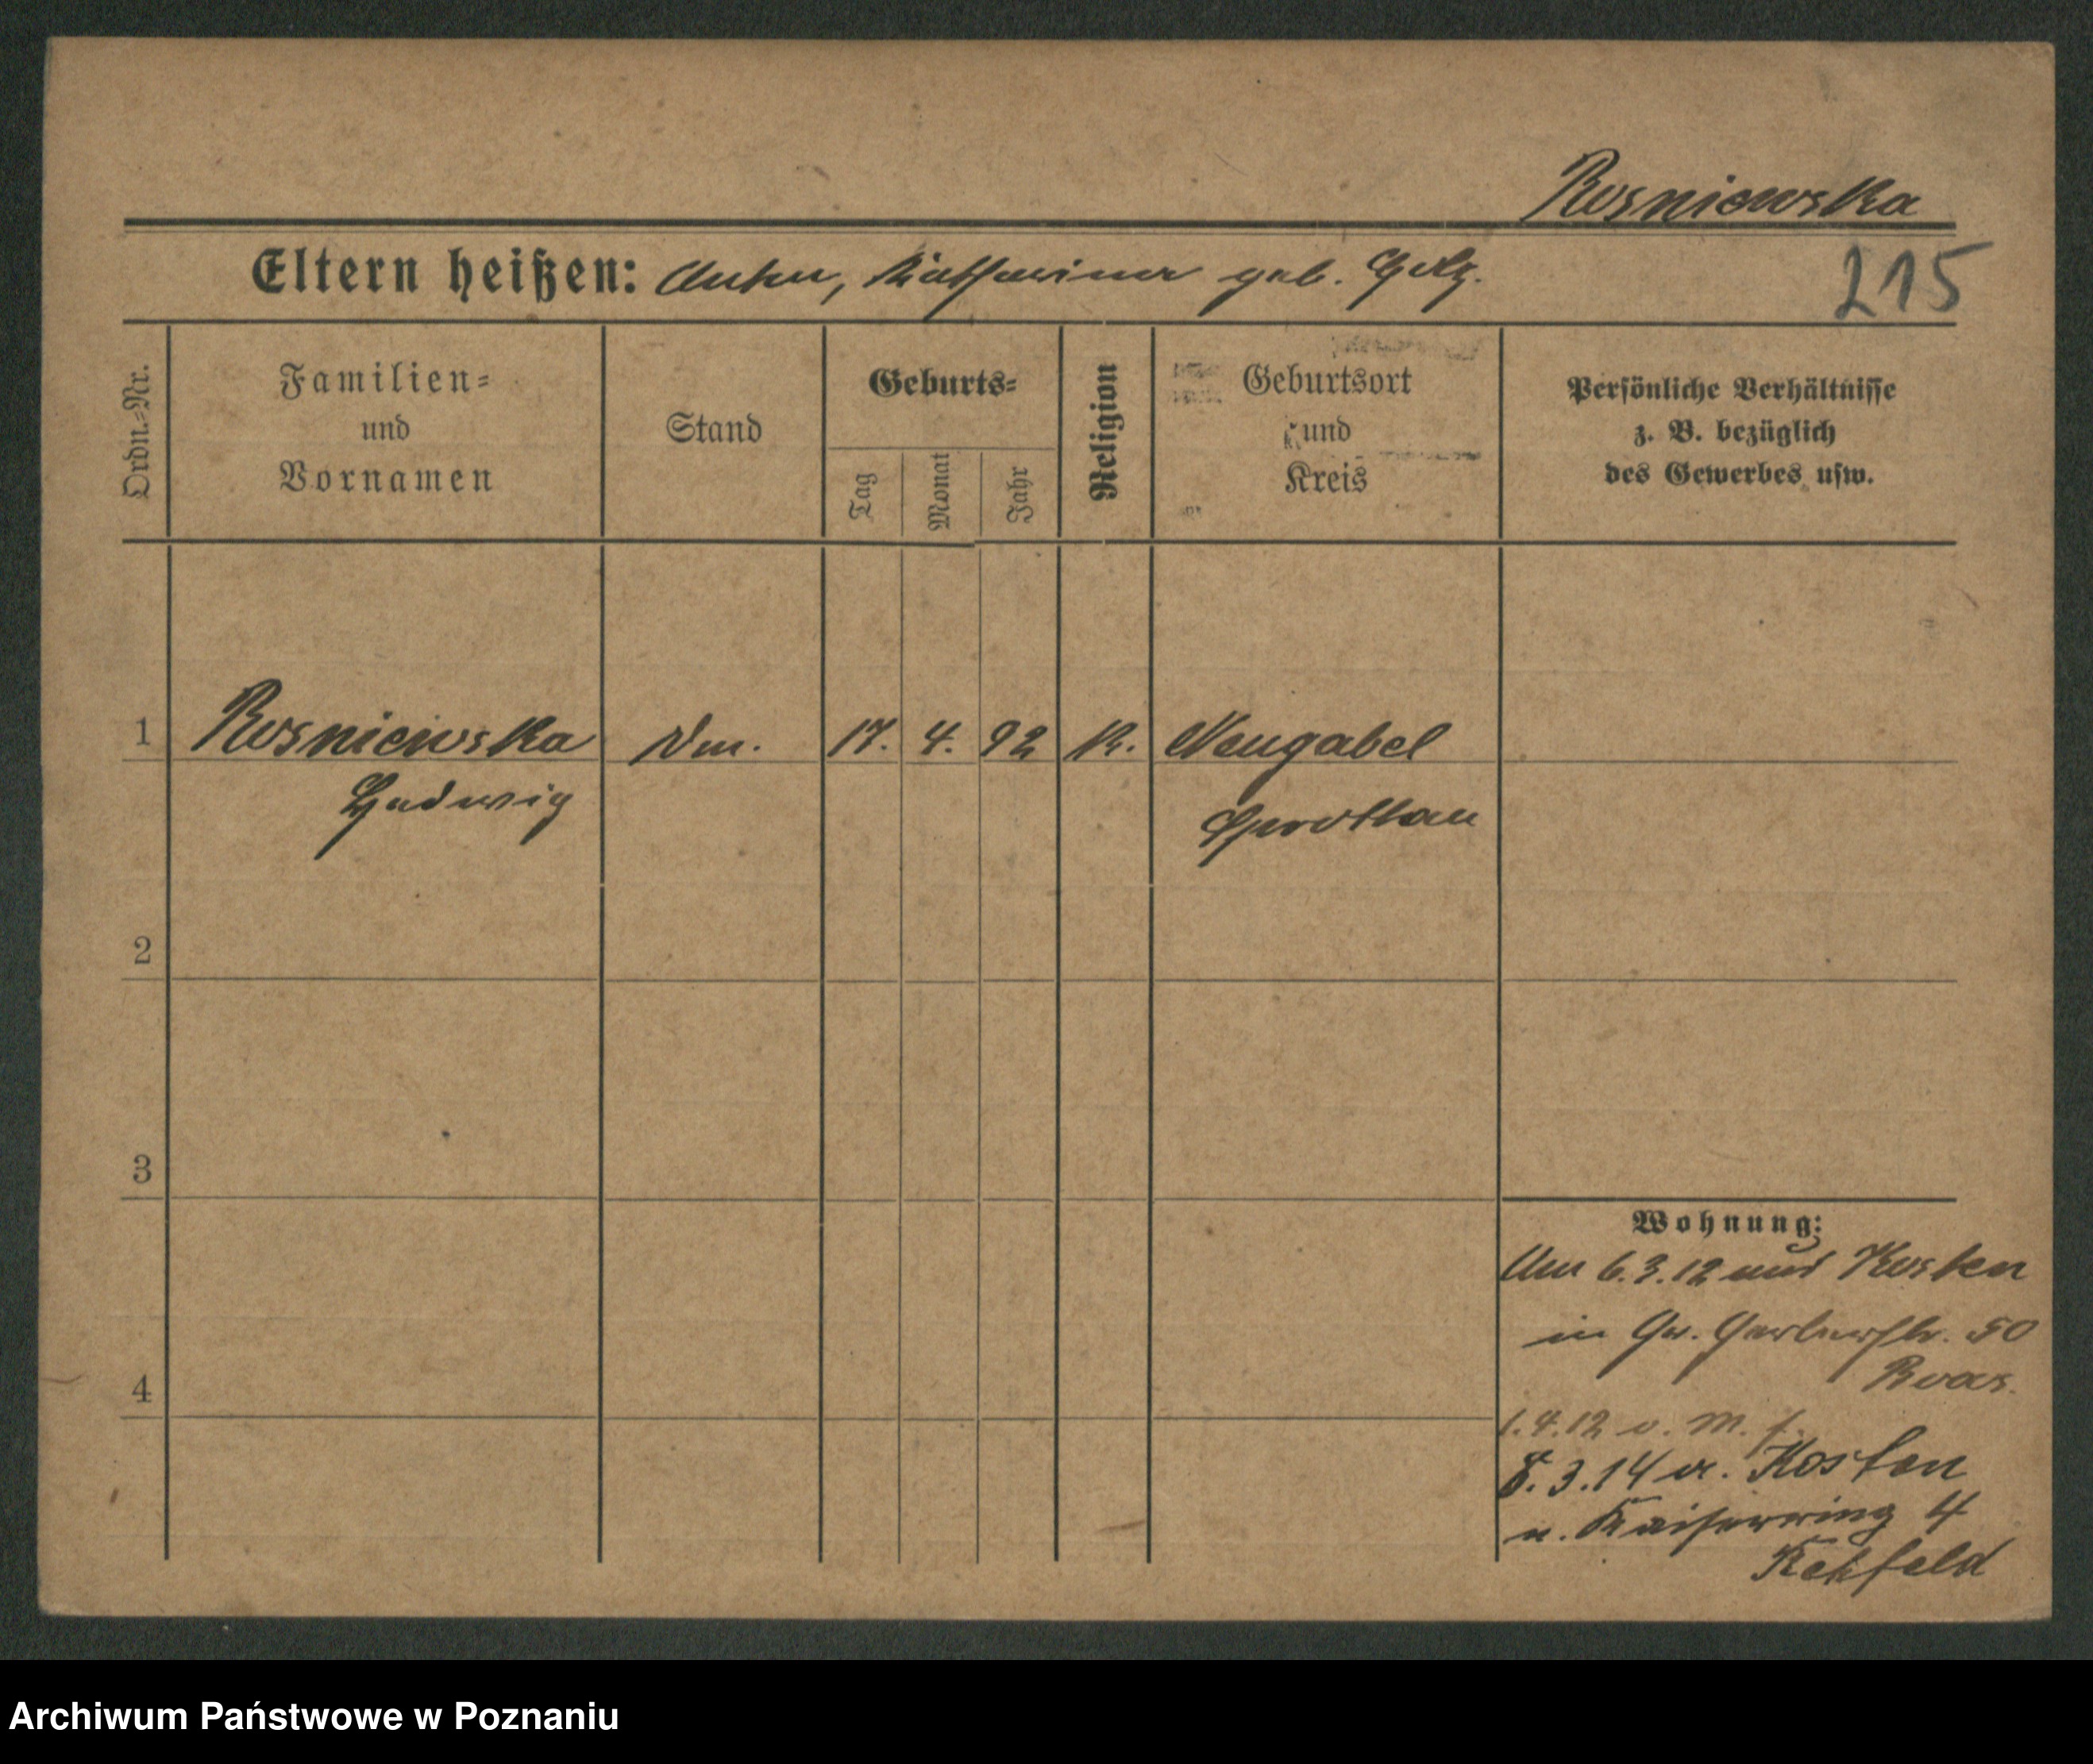 Rosniewska
Eltern heißen: Anton, Katharina geb. Golz.
215
Ordn.-Nr.
Familien-
und
Vornamen
Stand
Geburts-
Tag
Monat
Jahr
Religion
Geburtsort
und
Kreis
Persönliche Verhältnisse
z. B. bezüglich
des Gewerbes usw.
1 Rosniewska Dm. 17. 4. 92 K. Neugabel
Hedwig Sprottau
2
3
4
Wohnung:
Am 6.3.12 aus Kosten
in Gr. Gerberstr. 50
1.4.12 v. M. f.
8.3.14 a. Kosten
n. Kaiserring 4
Rehfeld
Archiwum Państwowe w Poznaniu